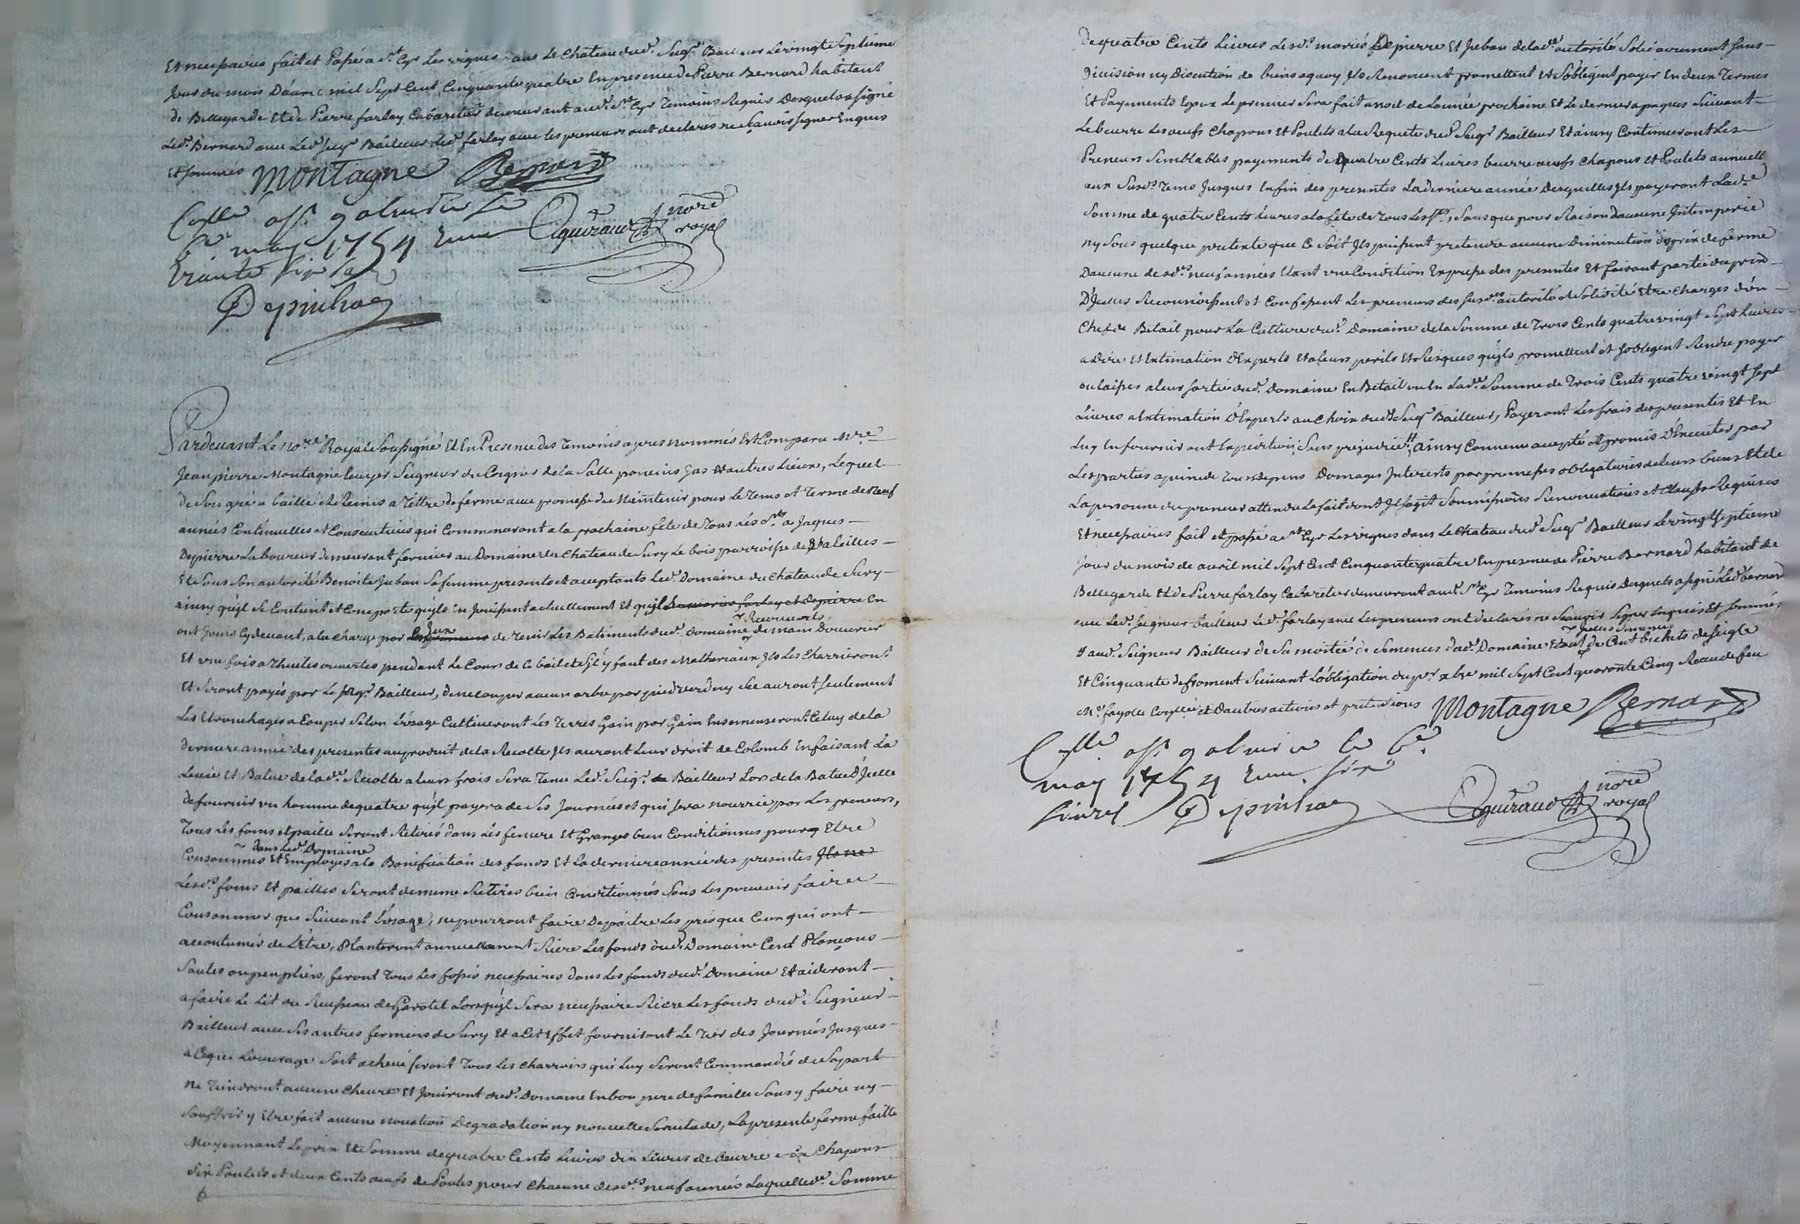 Et necessaires fait et Passé a st Cyr les vignes dans le Chateau dud. Seigr. Bailleur le vingt Septieme
Jour du mois D'avril mil Sept Cent Cinquante quatre En presence de Pierre Bernard habitant
de Bellegarde Et de Pierre farlay Cabaretier demeurant aud. st Cyr Temoins Requis Desquels a signé
Led. Bernard avec Led. Seigr. Bailleur Led. farlay avec les preneurs ont declarés ne Sçavoir signer Enquis
Et sommés Montagne Bernard
Collé
may 1754
trente six
Depinhac
royal
Pardevant Le nore Royal Soussigné Et En Presence des Temoins apres nommés Est Comparu Mre
Jean pierre Montagne Ecuyer Seigneur de Poignés de la Salle poncins Jas Et autres lieux, Lequel
de Son gré a baillé et Remis a Titre de ferme avec promesse de Maintenir pour Le Tems et Terme de Neuf
années Continuelles et Consecutives qui Commenceront a la prochaine fête de Tous Les Sts a Jaques
Depierre Laboureur demeurant fermier au Domaine du Chateau de Sury Le bois parroisse de Valeilles
Et Sous Son autorité Benoite Juban Sa femme presents et acceptants Led. Domaine du Chateau de Sury
ainsy qu'il Se Contient et Comporte qu'ils En Jouissent actuellement Et qu'il En
ont Jouis Cy devant, a la charge par Eux de Tenir Les Batiments dud. Domaine Recouverts de main D'ouvrier
Et une fois a Thuilles ouvertes pendant Le Cours de la bail et S'il y faut des Matheriaux Ils Les Charrieront
Et Seront payés par Le Seigr. Bailleur, De ne Couper aucun arbre par pied verd ny Sec auront seulement
Les Etronchages a Couper Selon L'usage Cultiveront Les Terres Gain par Gain Ensemenseront Celuy de la
derniere année des presentes au produit de la Recolte Ils auront Leur droit de Colomb En faisant La
Levée Et Batue de lad. Recolte a leurs frais Sera Tenu Led. Seigr. Bailleur Lors de la Batue D'Icelle
de fournir un homme de quatre qu'il payera de Ses Journées et qui Sera nourrie par Les preneurs,
Tous Les foins et paille Seront Retirés dans Les feniere Et Granges bien Conditionnés pour Etre
Consommés dans Led. Domaine Et Employés a la Bonification des fonds Et La derniere année des presentes
Lesd. foins Et pailles Seront de meme Retirés bien Conditionnés Sans Les pouvoir faire
Consommer que Suivant L'usage, ne pourront faire Depaitre Les prés que Ceux qui ont
accoutumés de L'être, Planteront annuellement Riere Les fonds dud. Domaine Cent Plançons
Saules ou peupliers, feront Tous Les fossés necessaires dans Les fonds dud. Domaine Et aideront
a faire Le Lit du Ruisseau de Garotet Lorsqu'il Sera necessaire Riere Les fonds dud. Seigneur
Bailleur avec Ses autres fermiers de Sury Et a Cet Effet fourniront Le Tier des Journées Jusques
a Ceque L'ouvrage Soit achevé feront Tous Les Charrois qui Luy Seront Commandés de Sa part
Ne Tiendront aucune Chevre Et Jouiront dud. Domaine En bon pere de famille Sans y faire ny
Souffrir y Etre fait aucune Degradation ny nouvelle Servitude, La presente ferme faitte
Moyennant Le prix Et Somme de quatre Cents Livres dix Livres de beurre Chapons
Six Poulets et deux Cents oeufs de Poules pour Chacune desd. neuf années Laquelle de. Somme
De quatre Cents Livres Lesd. mariés Depierre Et Juban de lade. autorité Solidairement Sans
Division ny Discution de biens a quoy Ils Renoncent promettent Et S'obligent payer En deux Termes
Et Payements Egaux Le premier Sera fait a noel de L'année prochaine Et le dernier a paques Suivant
Le beurre Les oeufs Chapons Et Poulets a la Requete dud. Seigr. Bailleur Et ainsy Continueront Les
Preneurs Semblables payements de quatre Cents Livres beurre oeufs chapons et Poulets annuell
aux Susd. Tems Jusques En fin des presentes La derniere année Desquelles Ils payeront Lade.
Somme de quatre Cents Livres a la fête de Tous Les Sts, Sans que pour Raison d'aucune Intemperie
ny Sous quelque pretexte que Ce Soit Ils puissent pretendre aucune Diminution du prix de ferme
D'aucune desd. neuf années Etant une Condition Expresse des presentes Et faisant partie du prix
D'Icelles Reconnoissent et Confessent Les preneurs des Susd. autorité et Solidité Etre Charges d'un
Chetde Betail pour La Culture dud. Domaine de la Somme de Trois Cents quatre vingt Sept Livres
a dire Et Estimation D'Experts Et a leurs perils Et Risques qu'ils promettent et S'obligent Rendre payer
ou laisser a leur Sortie dud. Domaine En Betail ou En Lade. Somme de Trois Cents quatre vingt Sept
Livres a Estimation D'Experts au Choix dud. Seigr. Bailleur, Payeront Les frais des presentes Et En
Luy En fourniront Expedition, Sans prejudice, ainsy Convenu accepté et promis D'Executer par
Les parties a peine de Tous depens Domages Interests par promesses obligatoires de leurs biens Et de
La personne du preneur attendu Le fait dont Il s'agit Soumissions Renonciations et Clauses Requises
Et necessaires fait et passé a st Cyr Les vignes dans Le Chateau dud. Seigr. Bailleur Le vingt Septieme
jour du mois de avril mil Sept Cent Cinquante quatre En presence de Pierre Bernard habitant de
Bellegarde Et de Pierre farlay Cabaretier demeurant aud. st Cyr Temoins Requis desquels a signé Led. bernard
avec Led. Seigneur bailleur Led. farlay avec Les preneurs ont declarés ne Sçavoir signer Enquis Et sommés
aud. Seigneur Bailleur de Sa moitié de Semences dud. Domaine de Cent bichets de Seigle
Et Cinquante de froment Suivant L'obligation du per xbre mil Sept Cent quarante Cinq
et D'autres actions et pretentions Montagne Bernard
Collé
may 1754
Livres Depinhac
royal